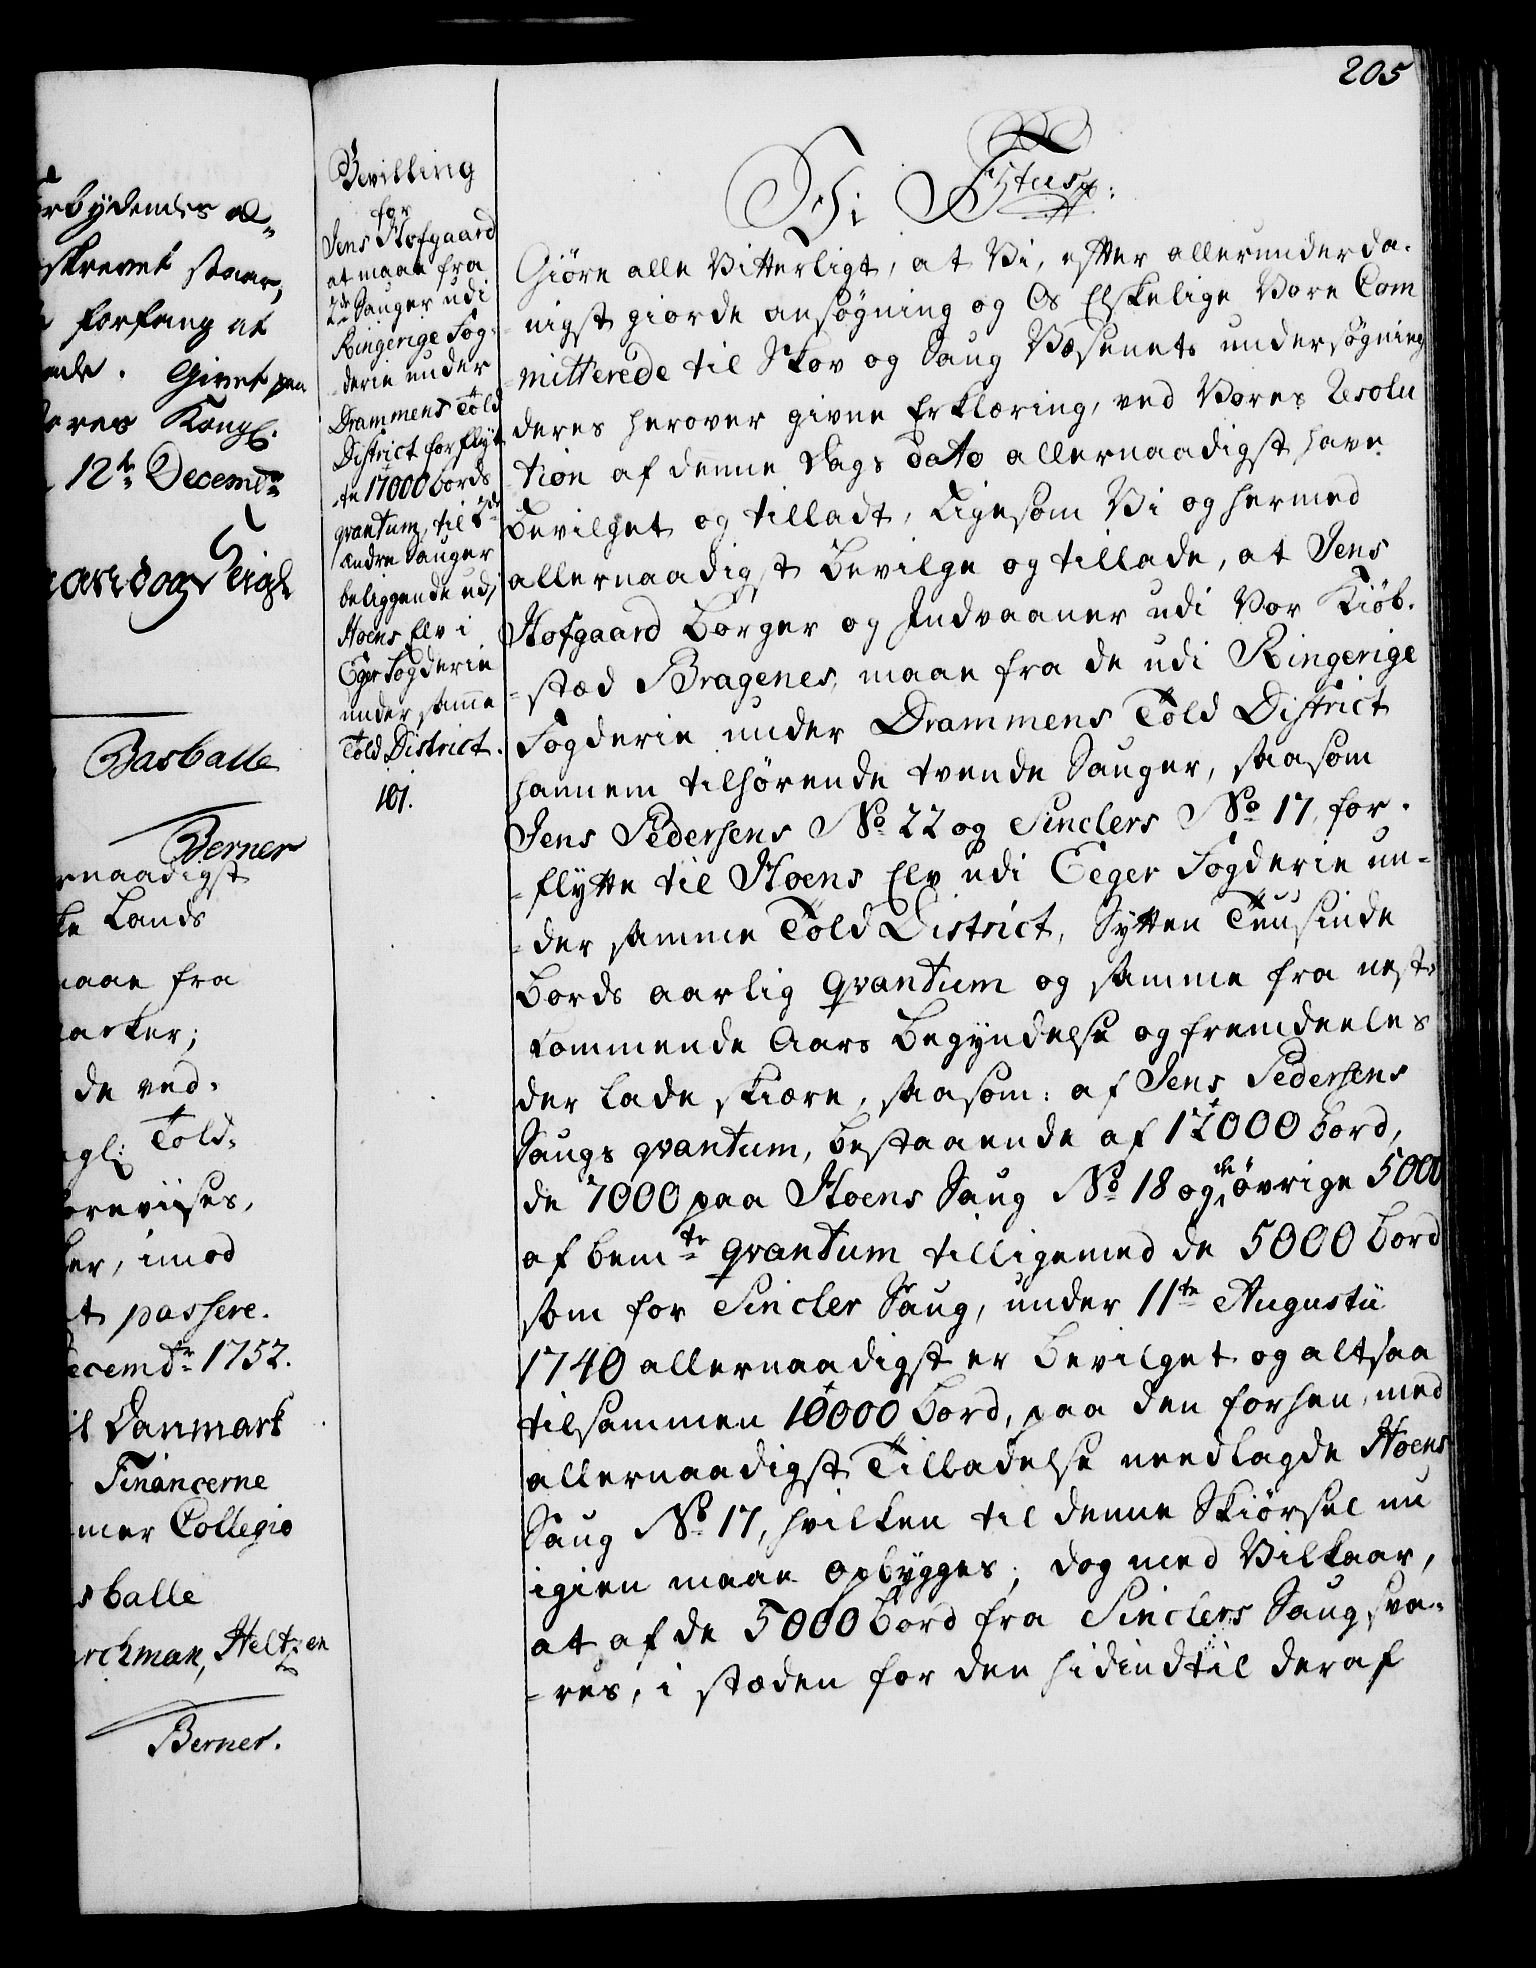 205
rbydendes al-
skrevet staar,
forfang at
ende. Givet paa
ores Kongl:
12te Decembr
Basballe
Berner
rnaadigst
ke Lands
maae fra
marker;
de ved-
gl: Told-
oreviises,
er, imod
at passere.
Decembr 1752.
il Danmark
Financerne
mer Collegio
sballe
rchman, Heltzen
Berner.
Bevilling
for
Jens Hofgaard
at maae fra
2de Sauger udi
Ringerige Fog-
derie under
Drammens Told
District forflyt-
te 17000 bords
qvantum, til 2de
andre Sauger
beliggende udi
Hoens Elv i
Eger Fogderie
under samme
Told District.
101.
Vi F 5tus p:
Giøre alle Vitterligt, at Vi, efter allerunderda-
nigst giorde ansøgning og Os Elskelige Vore Com
mitterede til Skov og Saug Væsenets undersøgning
deres herover givne Erklæring, ved Vores Resolu
tion af denne Dags Dato allernaadigst have
bevilget og tilladt, Ligesom Vi og hermed
allernaadigst bevilge og tillade, at Jens
Hofgaard borger og Indvaaner udi Vor Kiøb-
stæd Bragenes, maae fra de udi Ringerige
Fogderie under Drammens Told District
hannem tilhørende tvende Sauger, saasom
Jens Pedersens No 22 og Sinclers No 17, for-
flytte til Hoens Elv udi Eeger Fogderie un-
der samme Told District, Sytten Tuusinde
bords aarlig qvantum og samme fra nest-
kommende Aars begyndelse og fremdeeles
der lade skiære, saasom: af Jens Pedersens
Saugs qvantum, bestaaende af 12000 bord,
de 7000 paa Hoens Saug No 18 og de øvrige 5000
af bemte qvantum tilligemed de 5000 bord
som for Sincler Saug, under 11te Augustii
1740 allernaadigst er bevilget og altsaa
tilsammen 10000 bord, paa den forhen, med
allernaadigst Tilladelse needlagde Hoens
Saug No 17, hvilken til denne Skiørsel nu
igien maae opbygges; dog med Vilkaar,
at af de 5000 bord fra Sinclers Saug, sva-
res, i stæden for den hidindtil deraf